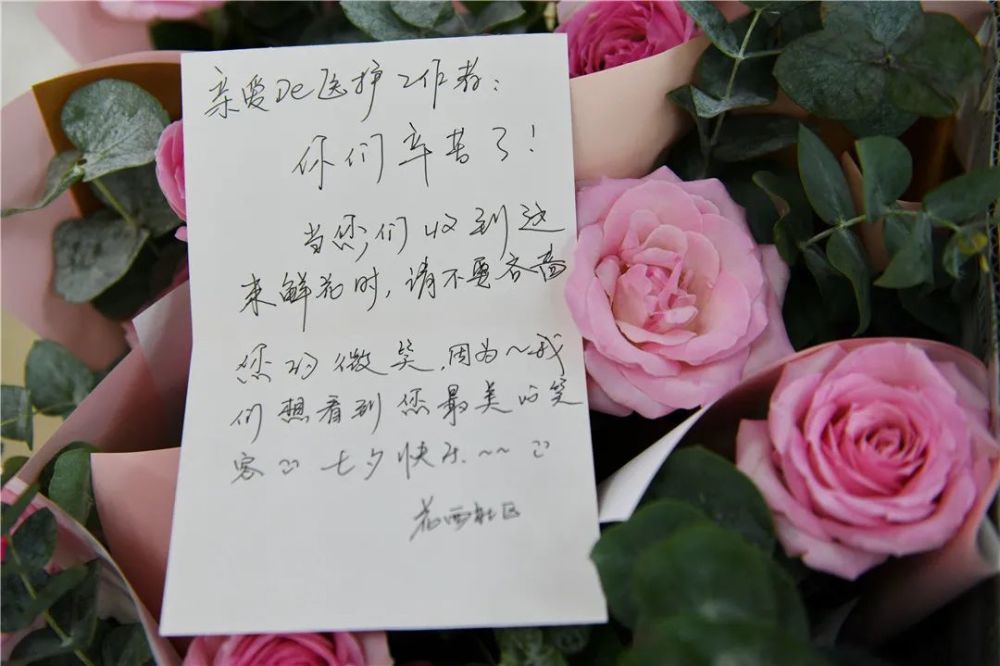 亲爱De医护工作者：
你们辛苦了！
当您们收到这
来鲜花时，请不要吝啬
您的微笑，因为~我
们想看到您最美的笑
容 七夕快乐~~
花西社区